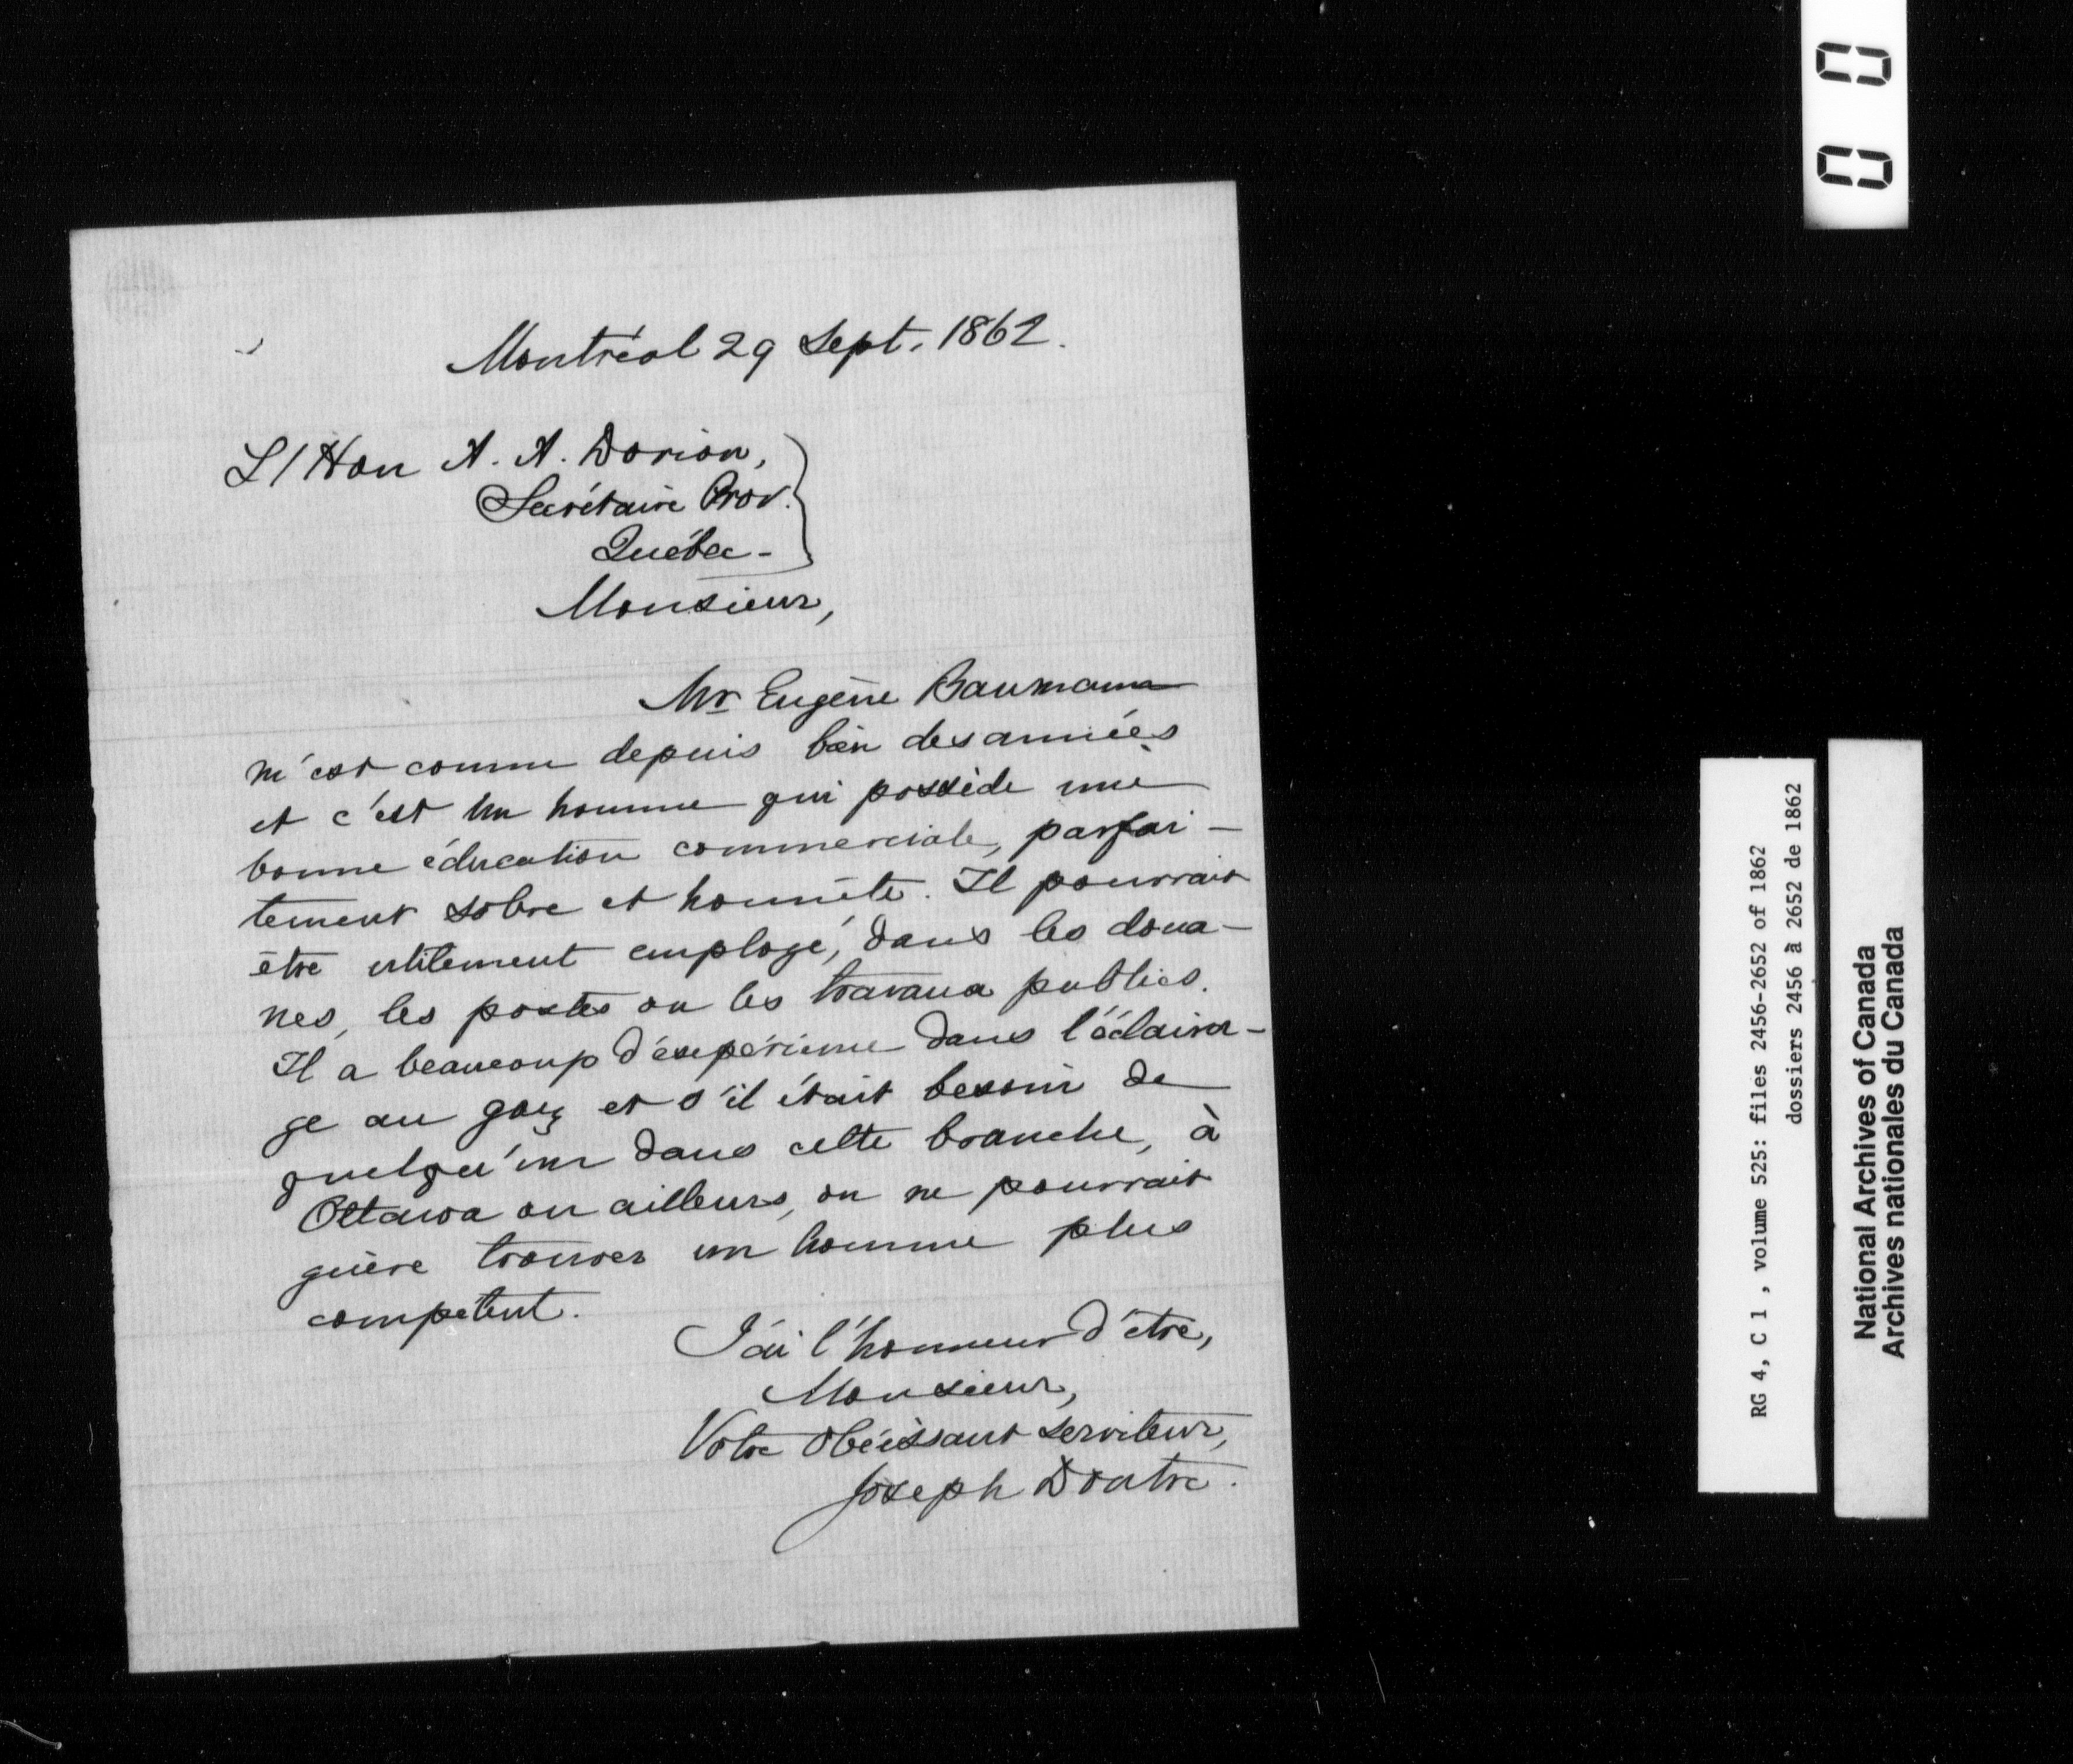 Montréal 29 Sept. 1862.
L'Hon A. A. Dorion,
Secrétaire Prov.
Québec -
Monsieur,
Mr Eugène Baumann
m'est connu depuis bien des années
et c'est un homme qui possède une
bonne éducation commerciale, parfai-
tement sobre et honnête. Il pourrait
être utilement employé, dans les doua-
nes, les postes ou les travaux publics.
Il a beaucoup d'expérience dans l'éclaira-
ge au gaz et s'il était besoin de
quelqu'un dans cette branche, à
Ottawa ou ailleurs, on ne pourrait
guère trouver un homme plus
compétent.
J'ai l'honneur d'être,
Monsieur,
Votre obéissant serviteur,
Joseph Doutre.
RG 4, C 1 , volume 525: files 2456-2652 of 1862
dossiers 2456 à 2652 de 1862
National Archives of Canada
Archives nationales du Canada
00